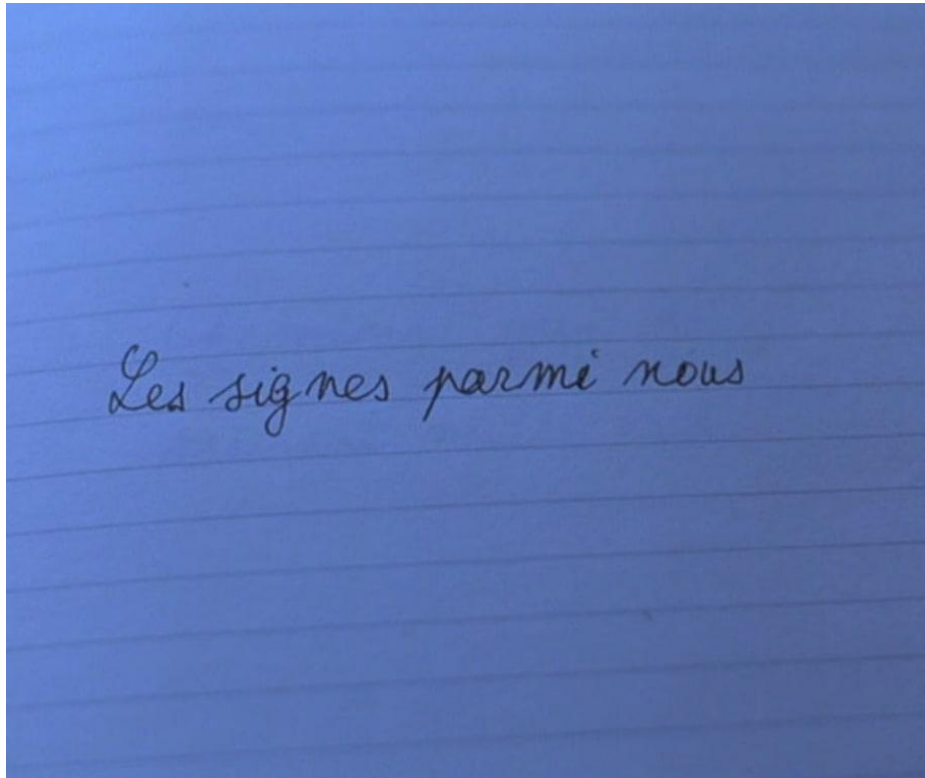 Les signes parmi nous